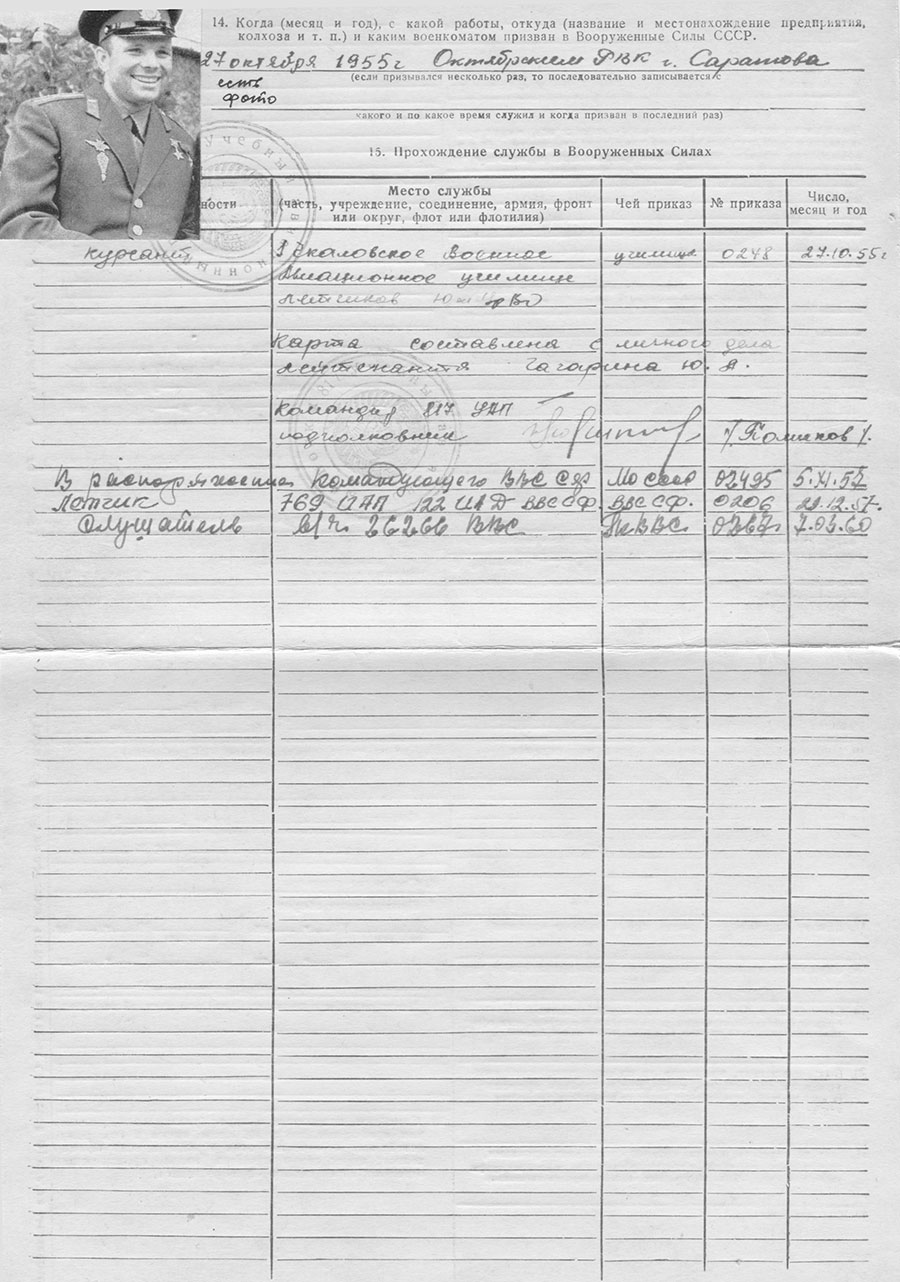 14. Когда (месяц и год), с какой работы, откуда (название и местонахождение предприятия,
колхоза и т. п.) и каким военкоматом призван в Вооруженные Силы СССР.
27 октября 1955 г Октябрьским РВК г. Саратова
(если призывался несколько раз, то последовательно записывается с
есть
фото
какого и по какое время служил и когда призван в последний раз)
15. Прохождение службы в Вооруженных Силах
ности
Место службы
(часть, учреждение, соединение, армия, фронт
или округ, флот или флотилия)
Чей приказ
№ приказа
Число,
месяц и год
курсант Чкаловское Военное училище 0248 27.10.55г
Авиационное училище
летчиков
Карта составлена с личного дела
лейтенанта Гагарина Ю. А.
Командир 817 УАП
подполковник /Поликов/.
В распоряжении Командующего ВВС Сф Москов 02495 5.XI.57
Летчик 769 ИАП 122 ИАД ВВС Сф. ВВС Сф. 0206 29.12.57.
Слушатель в/ч. 26266 ВВС ГкВВС. 0267 7.03.60